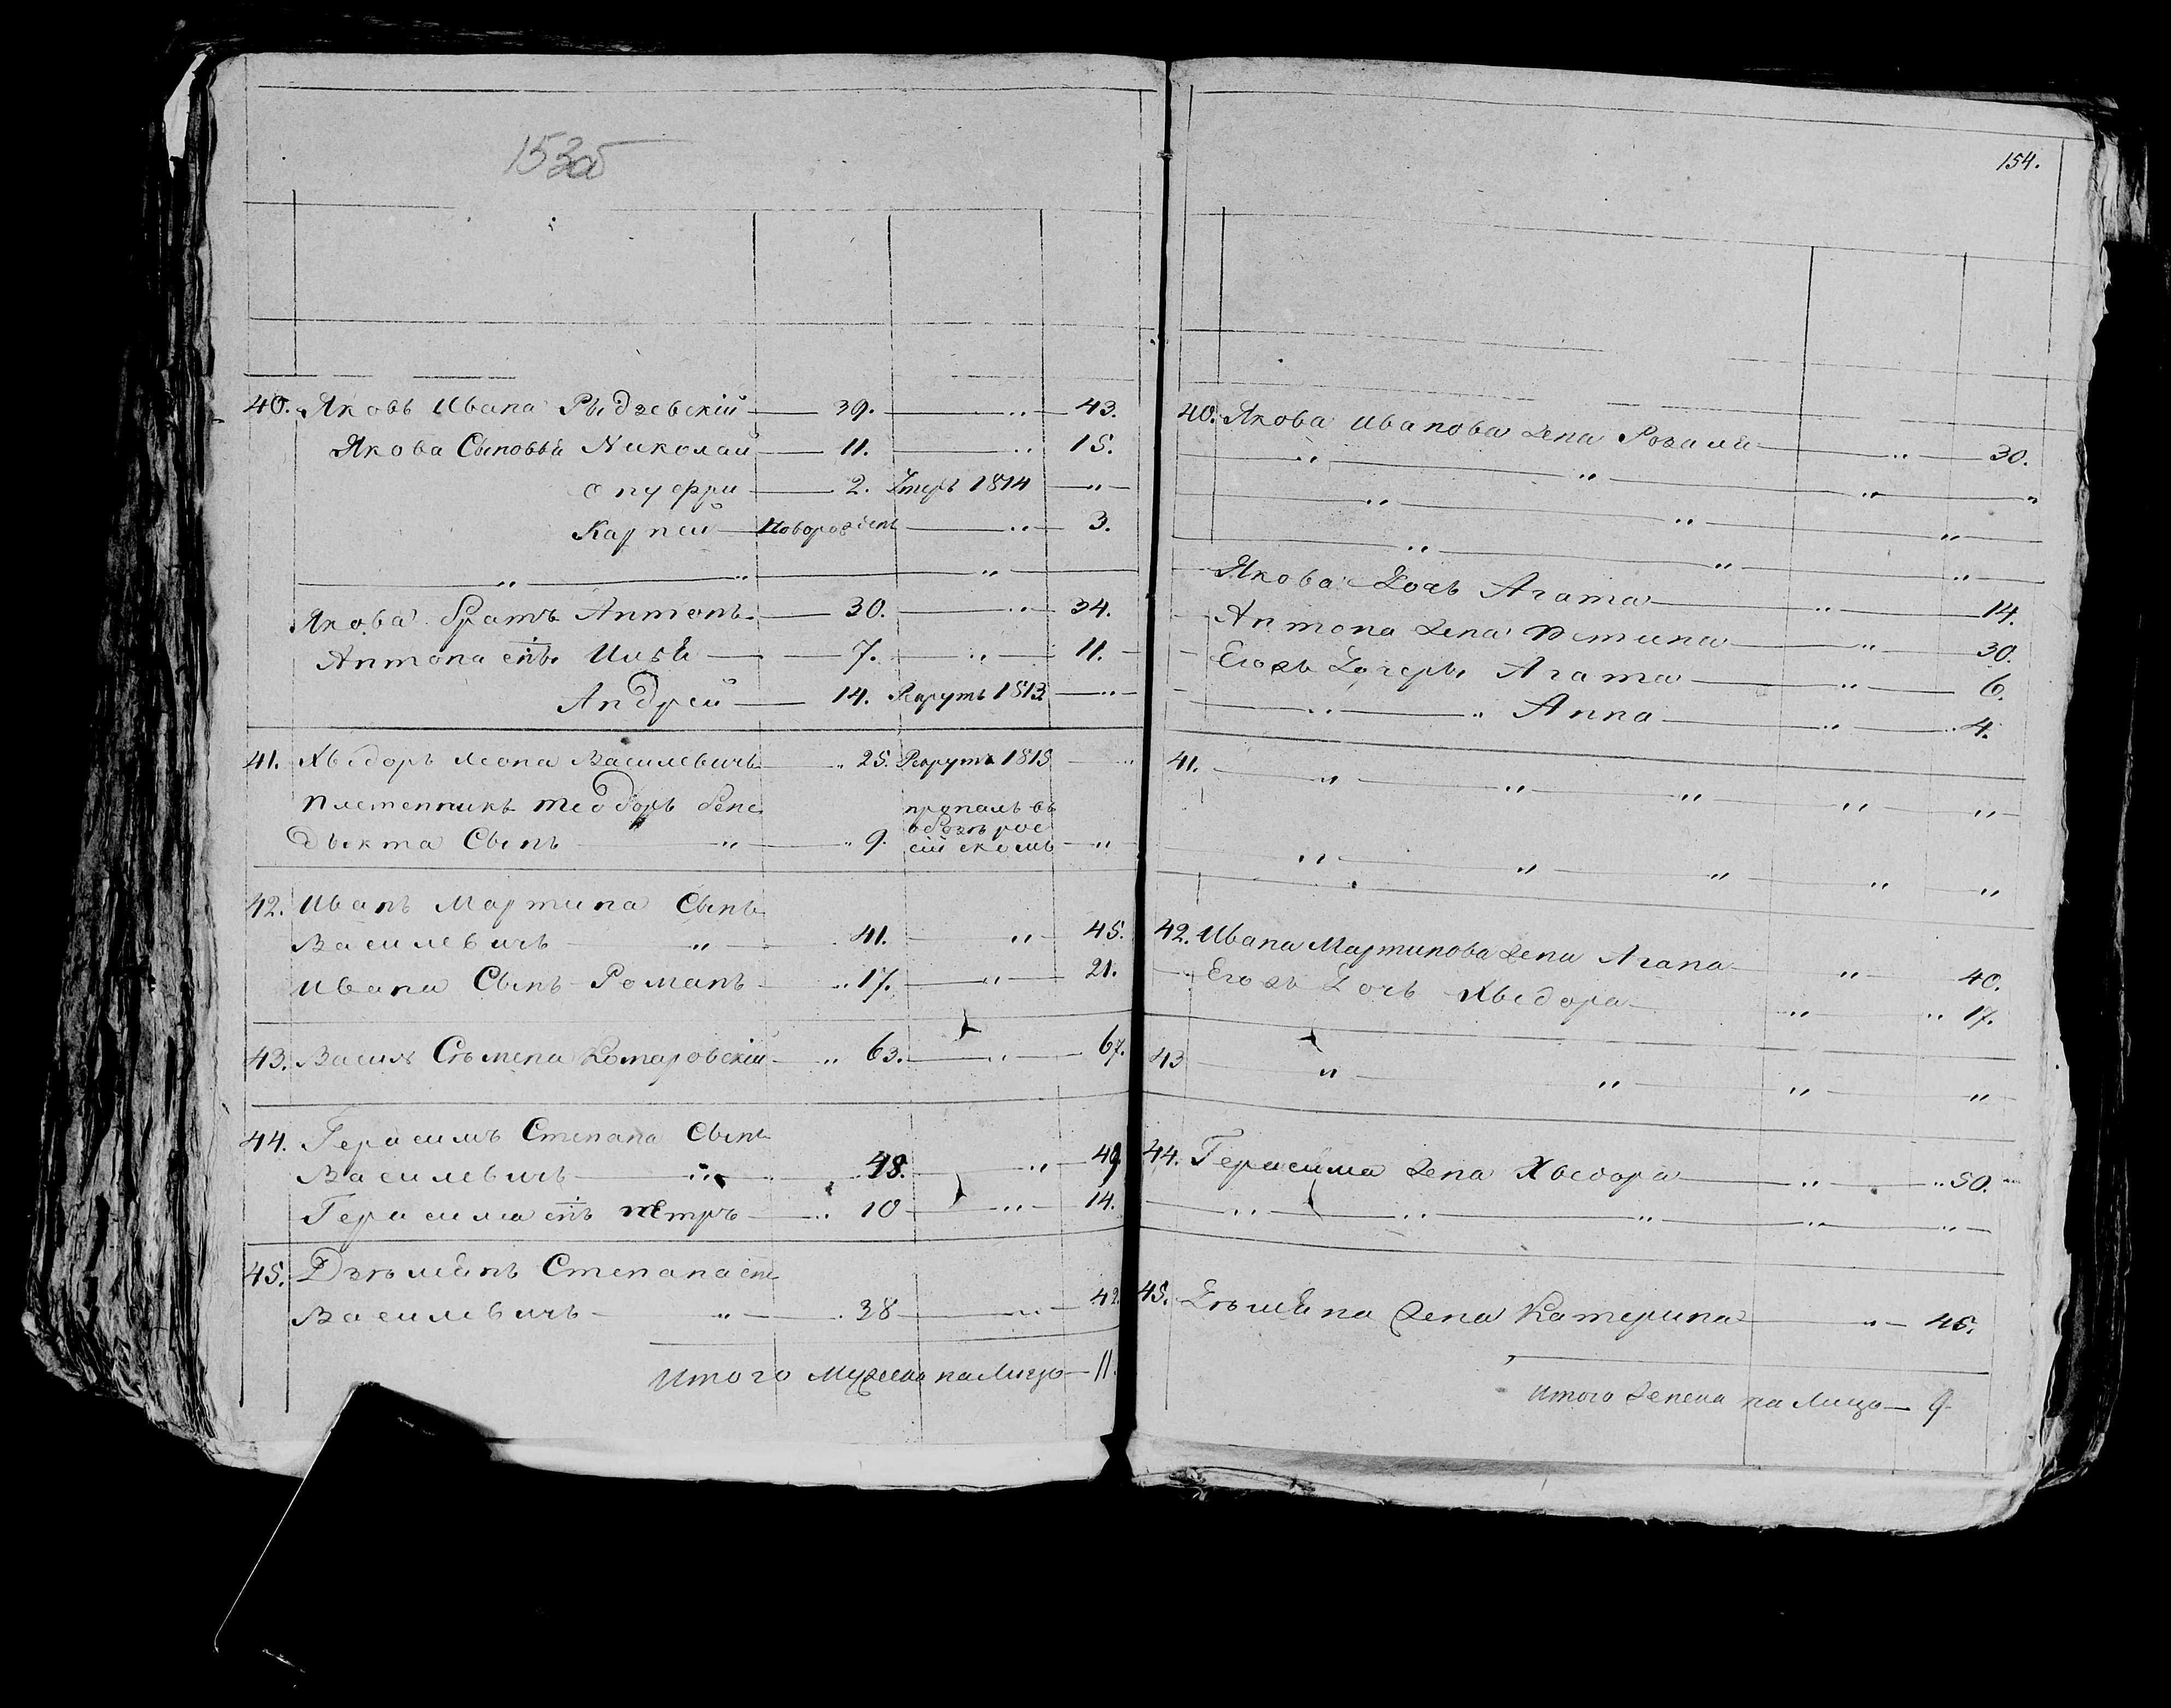 153об
40. Яковъ Ивана Рыдзевскій 39. „ 43.
Якова Сыновья Николай 11. „ 15.
Онуфри 2. Умеръ 1814 „
Карпей Новорожден „ 3.
„ „ „
Якова братъ Антонъ 30. „ 34.
Антона снъ Илья 7. „ 11.
Андрей 14. Рекрутъ 1813. „
41. Хведоръ Леона Василевичъ „ 25. Рекрутъ 1815 „
Племенникъ Теодоръ Бене пропалъ въ
дыкта Сынъ „ „ 9. обозѣ рос
сійскомъ „
42. Иванъ Мартина Сынъ
Василевичъ „ 41. „ 45.
Ивана Сынъ Романъ „ 17. „ 21.
43. Васил Сѣмена Комаровскій „ 63. „ 67.
44. Герасимъ Степана Сынъ
Василевичъ „ 48. „ 49.
Герасима снъ Петръ „ 10 „ 14.
45. Дэмѣянъ Степана сн
Василевичъ „ 38 „ 42.
Итого Мужеска на Лицо 11.
154.
40. Якова Иванова Жена Розалія „ 30.
„ „ „ „
„ „ „
„ „ „
Якова Дочь Агата „ 14.
Антона Жена Юстина „ 30.
Егожъ Дочеры Агата „ 6.
„ „ Анна „ 4.
41. „ „ „ „ „
„ „ „ „ „
42. Ивана Мартинова Жена Агапа „ 40.
Егожъ Дочь Хведора „ „ 17.
43 „ „ „ „
44. Герасима Жена Хведора „ „ 50.
„ „ „ „ „
45. Дэмѣяна Жена Катерина „ 45.
Итого Женска на Лицо 9